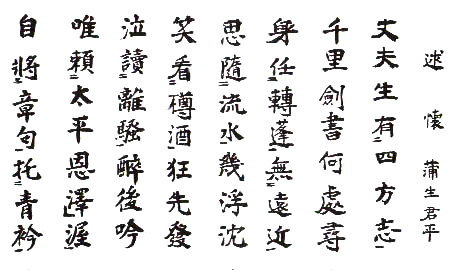 述懐 蒲生君平
丈夫生有四方志
千里劍書何處尋
身任轉蓬無遠近
思隨流水幾浮沈
笑看樽酒狂先發
泣讀離騷醉後吟
唯賴太平恩澤渥
自將章句托青衿